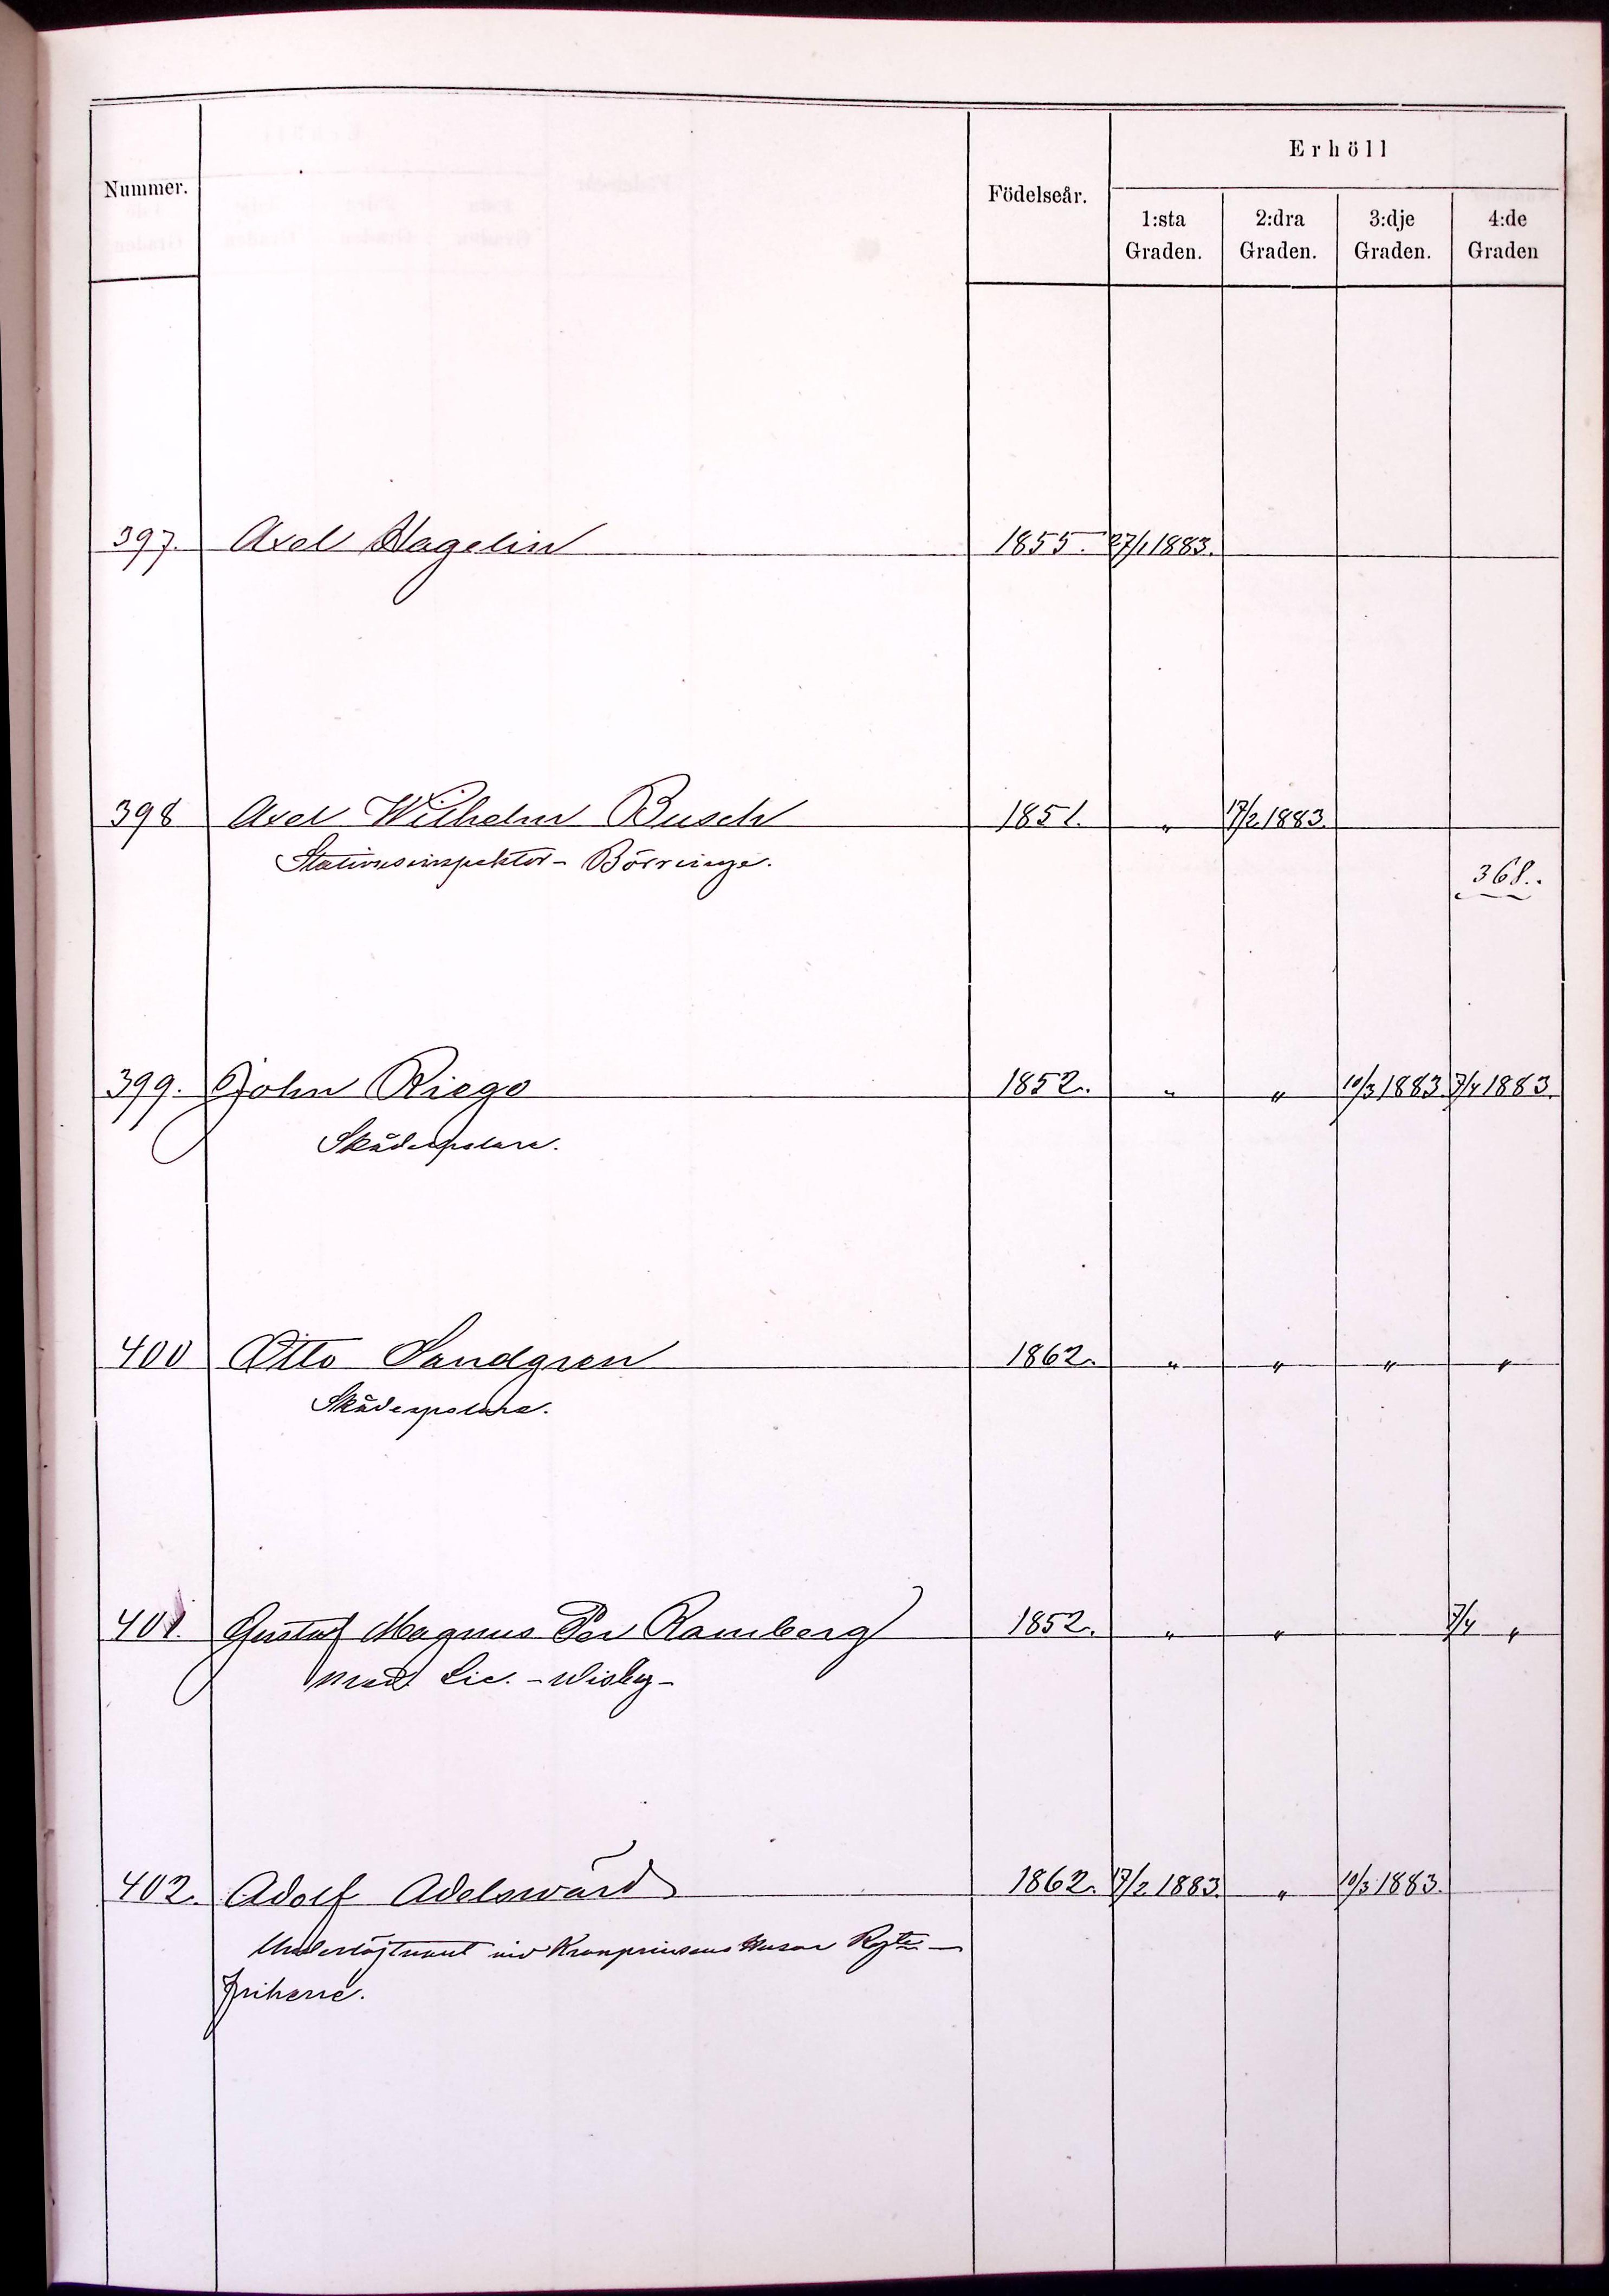 Erhöll
Nummer. Födelseår.
1:sta Graden. 2:dra Graden. 3:dje Graden. 4:de Graden
397. Axel Hagelin 1855. 27/1 1883.
398 Axel Wilhelm Busch 1851. " 17/2 1883.
Stationsinspektor - Börringe.
368..
399. John Riego 1852. " " 10/3 1883. 7/4 1883.
Skådespelare.
400 Otto Sandgren 1862. " " " "
Skådespelare.
401. Gustaf Magnus Per Ramberg 1852. " " 7/4 "
Med. Lic. - Wisby -
402. Adolf Adelswärd 1862. 17/2 1883. " 10/3 1883.
Underlöjtnant vid Kronprinsens Husar Regte -
friherre.